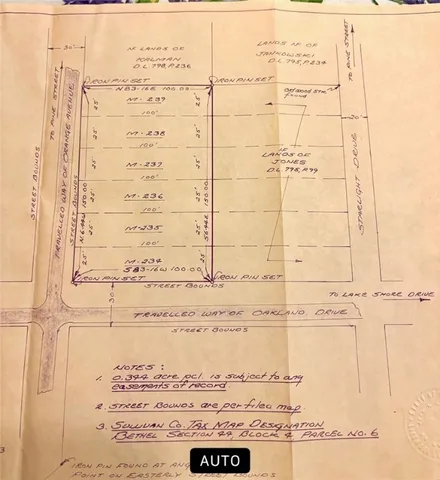 30'
N/F LANDS OF
KALMAN
D.L. 798, P. 236
LANDS N/F OF
JANKOWSKI
D.L. 795, P. 234
TO PINE STREET
TO PINE STREET
IRON PIN SET
IRON PIN SET
N 83-16 E 100.00
M-239
25'
25'
100'
M-238
25'
25'
100'
M-237
25'
25'
100'
M-236
25'
25'
100'
M-235
25'
25'
100'
M-234
25'
25'
S 83-16 W 100.00
150.00
150.00
found
N/F
LANDS OF
JONES
D.L. 795, P. 99
STREET BOUNDS
TRAVELLED WAY OF ORANGE AVENUE
STREET BOUNDS
STARLIGHT DRIVE
IRON PIN SET
IRON PIN SET
STREET BOUNDS
30'
TO LAKE SHORE DRIVE
TRAVELLED WAY OF OAKLAND DRIVE
STREET BOUNDS
NOTES:
1. 0.344 acre pcl. is subject to any
easements of record
2. STREET BOUNDS are per filed map.
3. SULLIVAN CO. TAX MAP DESIGNATION
BETHEL SECTION 44, BLOCK 4, PARCEL NO. 6
IRON PIN FOUND AT
POINT ON EASTERLY STREET BOUNDS
AUTO